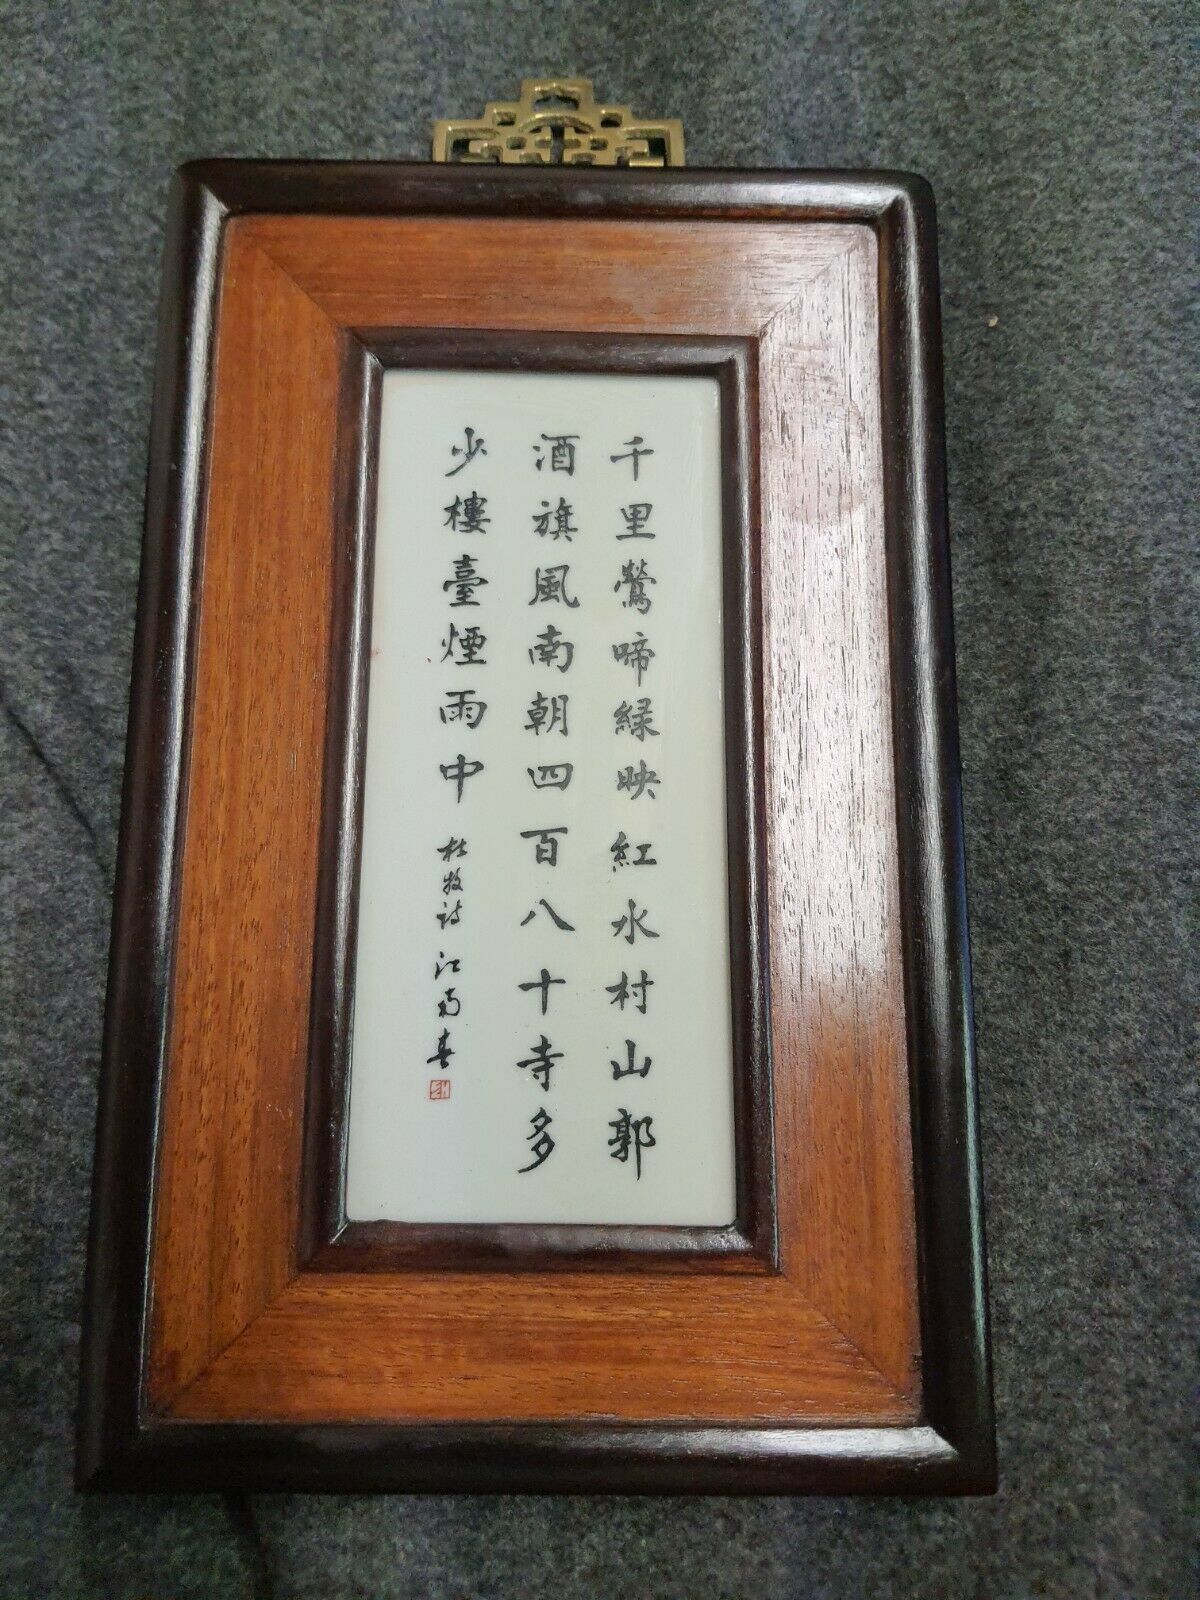 千里鶯啼緑映紅水村山郭
酒旗風南朝四百八十寺多
少樓臺煙雨中 杜牧詩 江南春